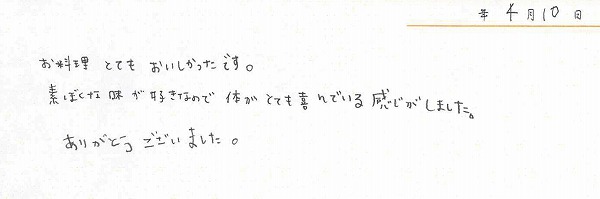 年 4月10日
お料理 とても おいしかったです。
素ぼくな味が好きなので 体がとても喜んでいる感じがしました。
ありがとう ございました。